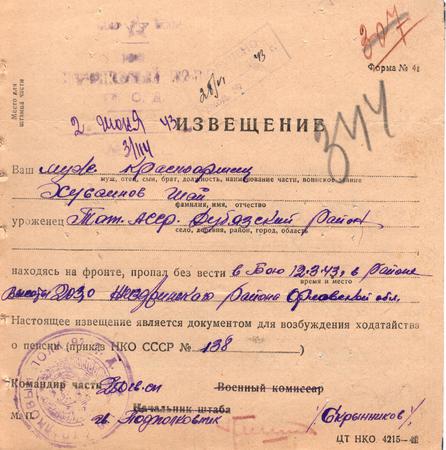 307
Форма № 4
Место для
штампа части
28/VI
43
2 июня 43
ИЗВЕЩЕНИЕ
3/114
344
Ваш муж красноармеец
муж, отец, сын, брат, должность, наименование части, воинское звание
Хуваинов Шай
фамилия, имя, отчество
уроженец Тат. АССР. Дубязский район
село, деревня, район, город, область
находясь на фронте, пропал без вести в бою 12.3.43 г. в районе
время и место
высоты 203,0 Жиздринского района Орловской обл.
Настоящее извещение является документом для возбуждения ходатайства
о пенсии (приказ НКО СССР № 138 )
Командир части
Военный комиссар
Начальник штаба
М. П.
гв. Подполковник
/Скрынников/
ЦТ НКО 4215-42